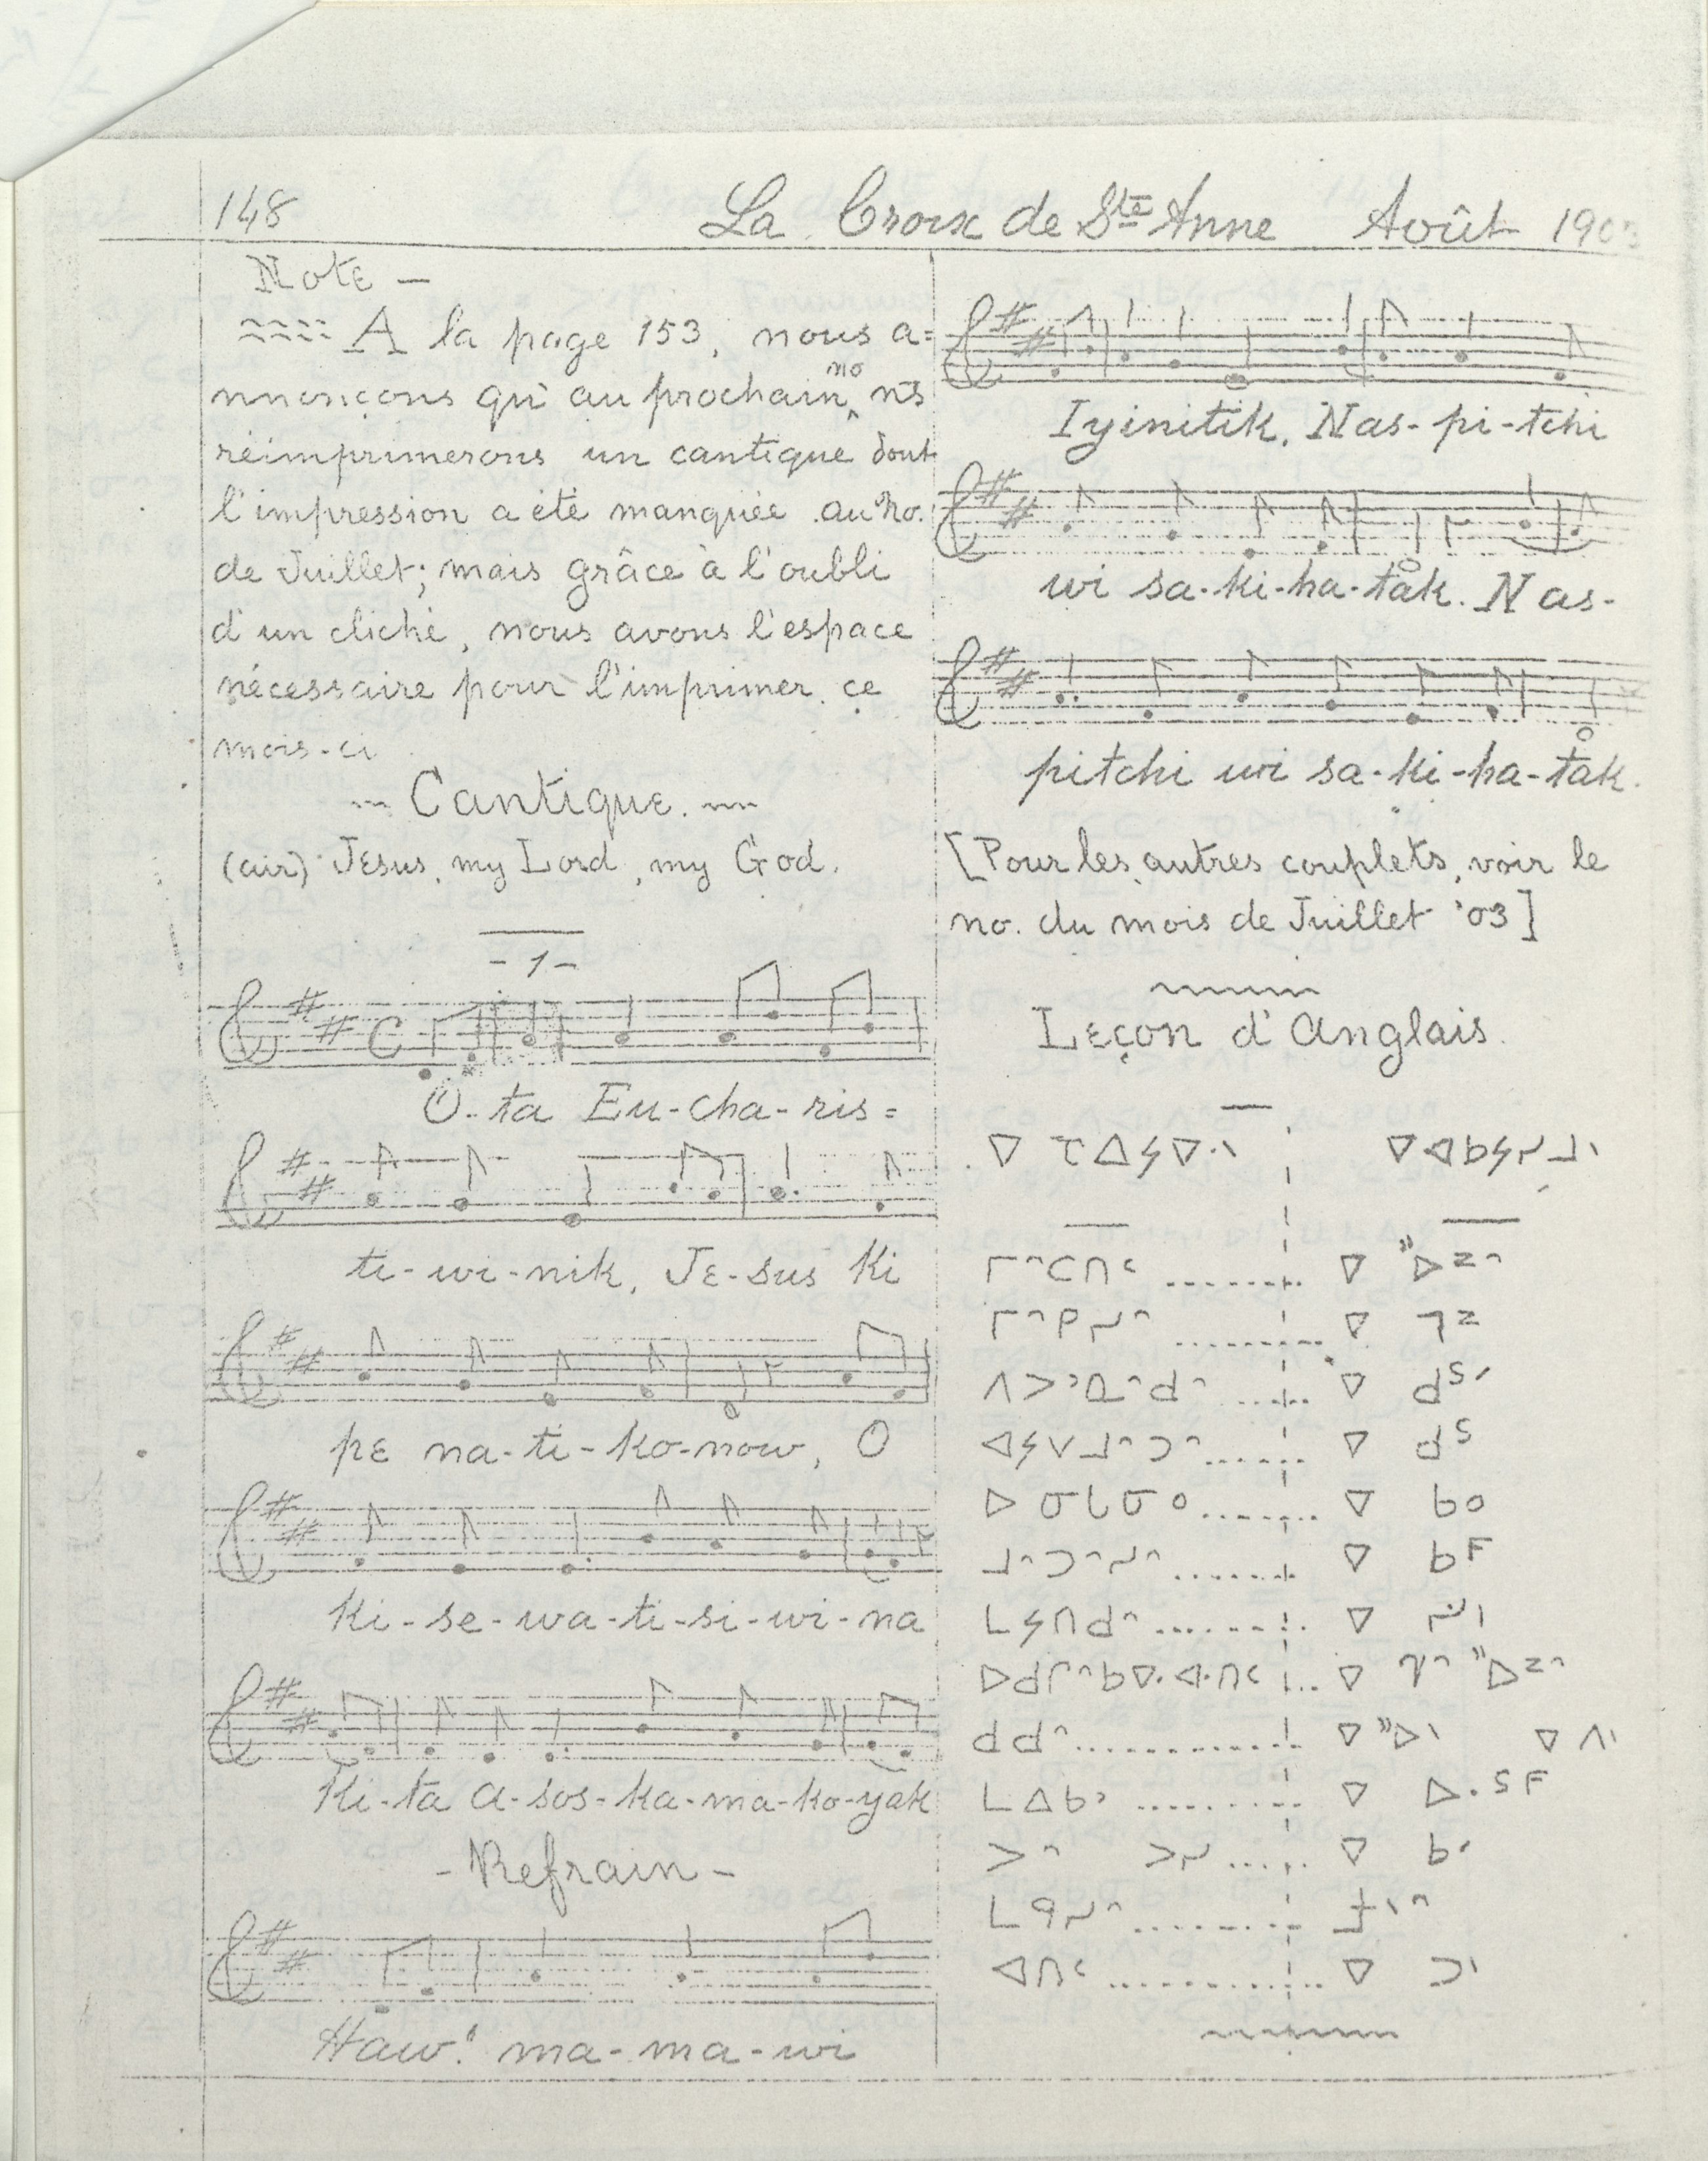 148 La Croix de Ste Anne Août 1903
Note —
A la page 153, nous a=
nnonçons qu'au prochain no ns
réimprimerons un cantique dont
l'impression a été manquée au no.
de Juillet; mais grâce à l'oubli
d'un cliché, nous avons l'espace
nécessaire pour l'imprimer ce
mois-ci
Cantique.
(air) Jesus, my Lord, my God.
-1-
O-ta Eu-cha-ris=
ti-wi-nik, Je-sus Ki
pe na-ti-ko-now, O
Ki-se-wa-ti-si-wi-na
Ki-ta a-sos-ka-ma-ko-yak
-Refrain-
Haw! ma-ma-wi
Iyinitik, Nas-pi-tchi
wi sa-ki-ha-tak. Nas-
pitchi wi sa-ki-ha-tak.
[Pour les autres couplets, voir le
no. du mois de Juillet '03]
Leçon d'Anglais.
ᐁ ᐃᔭᐁᐧᐠ ᐁᐊᑲᔭᓯᒧᐠ
ᒥᐢᑕᑎᐨ ᐁ
ᒥᐢᑭᓯᐢ ᐁ
ᐱᐳᐣᓇᐢᑯᐢ ᐁ
ᐊᔭᐯᒧᐢᑐᐢ ᐁ
ᐅ ᓂᒐᓂᐤ ᐁ ᑲᐤ
ᒧᐢᑐᐢᓯᐢ ᐁ
ᒪᔭᑎᑯᐢ ᐁ
ᐅᑯᒥᐢᑲᐁᐧᐊᐧᑎᐨ ᐁ
ᑯᑯᐢ ᐁ
ᒪᐃᑲᐣ ᐁ
ᐳᐢ ᐳᓯ ᐁ
ᒪᑫᓯᐢ
ᐊᑎᐨ ᐁ ᑐᐠ